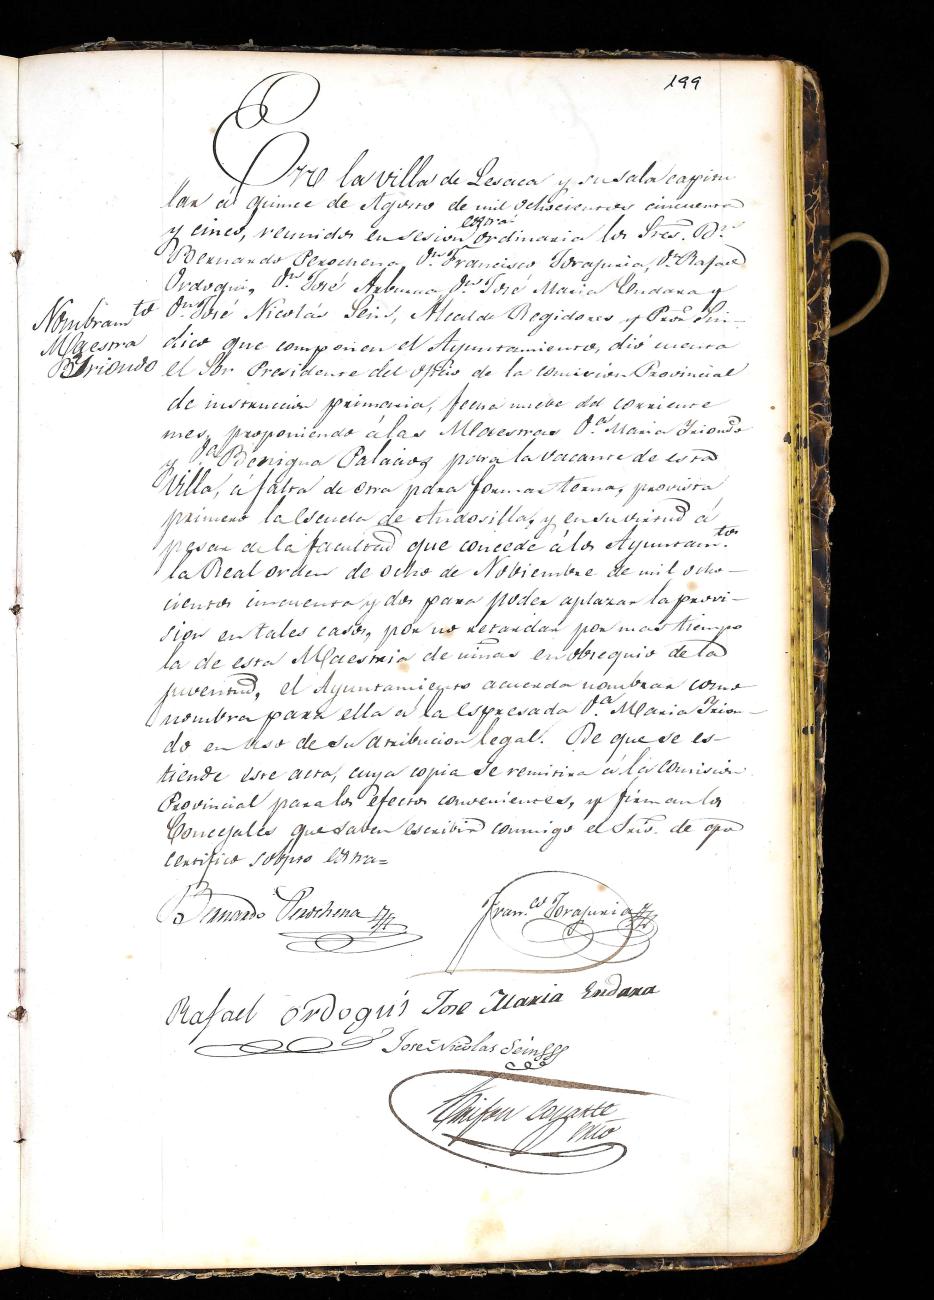 199
En la villa de Lesaca y su sala capitu
lar á quince de Agosto de mil ochocientos cincuenta
y cinco, reunidos en sesion extraordinaria los Sres. Dn.
Bernardo Perochena, Dn. Francisco Torajuria, Dn. Rafael
Ordoqui, Dn. José Arburua, Dn. José Maria Endara y
Dn. José Nicolás Sein, Alcalde Regidores y Pror. Sin-
dico que componen el Ayuntamiento, dió cuenta
Nombramto
Maestra
Yriondo
el Sor. Presidente del oficio de la comision Provincial
de instruccion primaria, fecha nueve del corriente
mes, proponiendo á las Maestras Da. Maria Yriondo
y Da. Benigna Palacios para la vacante de esta
Villa, á falta de otra para formar terna, provista
primero la escuela de Andosilla, y en su virtud á
pesar de la facultad que concede á los Ayuntamtos
la Real orden de ocho de Nobiembre de mil ocho-
cientos cincuenta y dos para poder aplazar la provi-
sion en tales casos, por no retardar por mas tiempo
la de esta Maestria de niñas en obsequio de la
juventud, el Ayuntamiento acuerda nombrar como
nombra para ella á la espresada Da. Maria Yrion-
do en uso de su atribucion legal. De que se es-
tiende este acta, cuya copia se remitira á la comision
Provincial para los efectos convenientes, y firman los
Concejales que saben escribir conmigo el Srio. de que
certifico sobpto extra=
Bernardo Perochena
Franco. Torajuria
Rafael Ordoquí Jose Maria Endara
Jose Nicolas Sein
Oyarzte
Srio